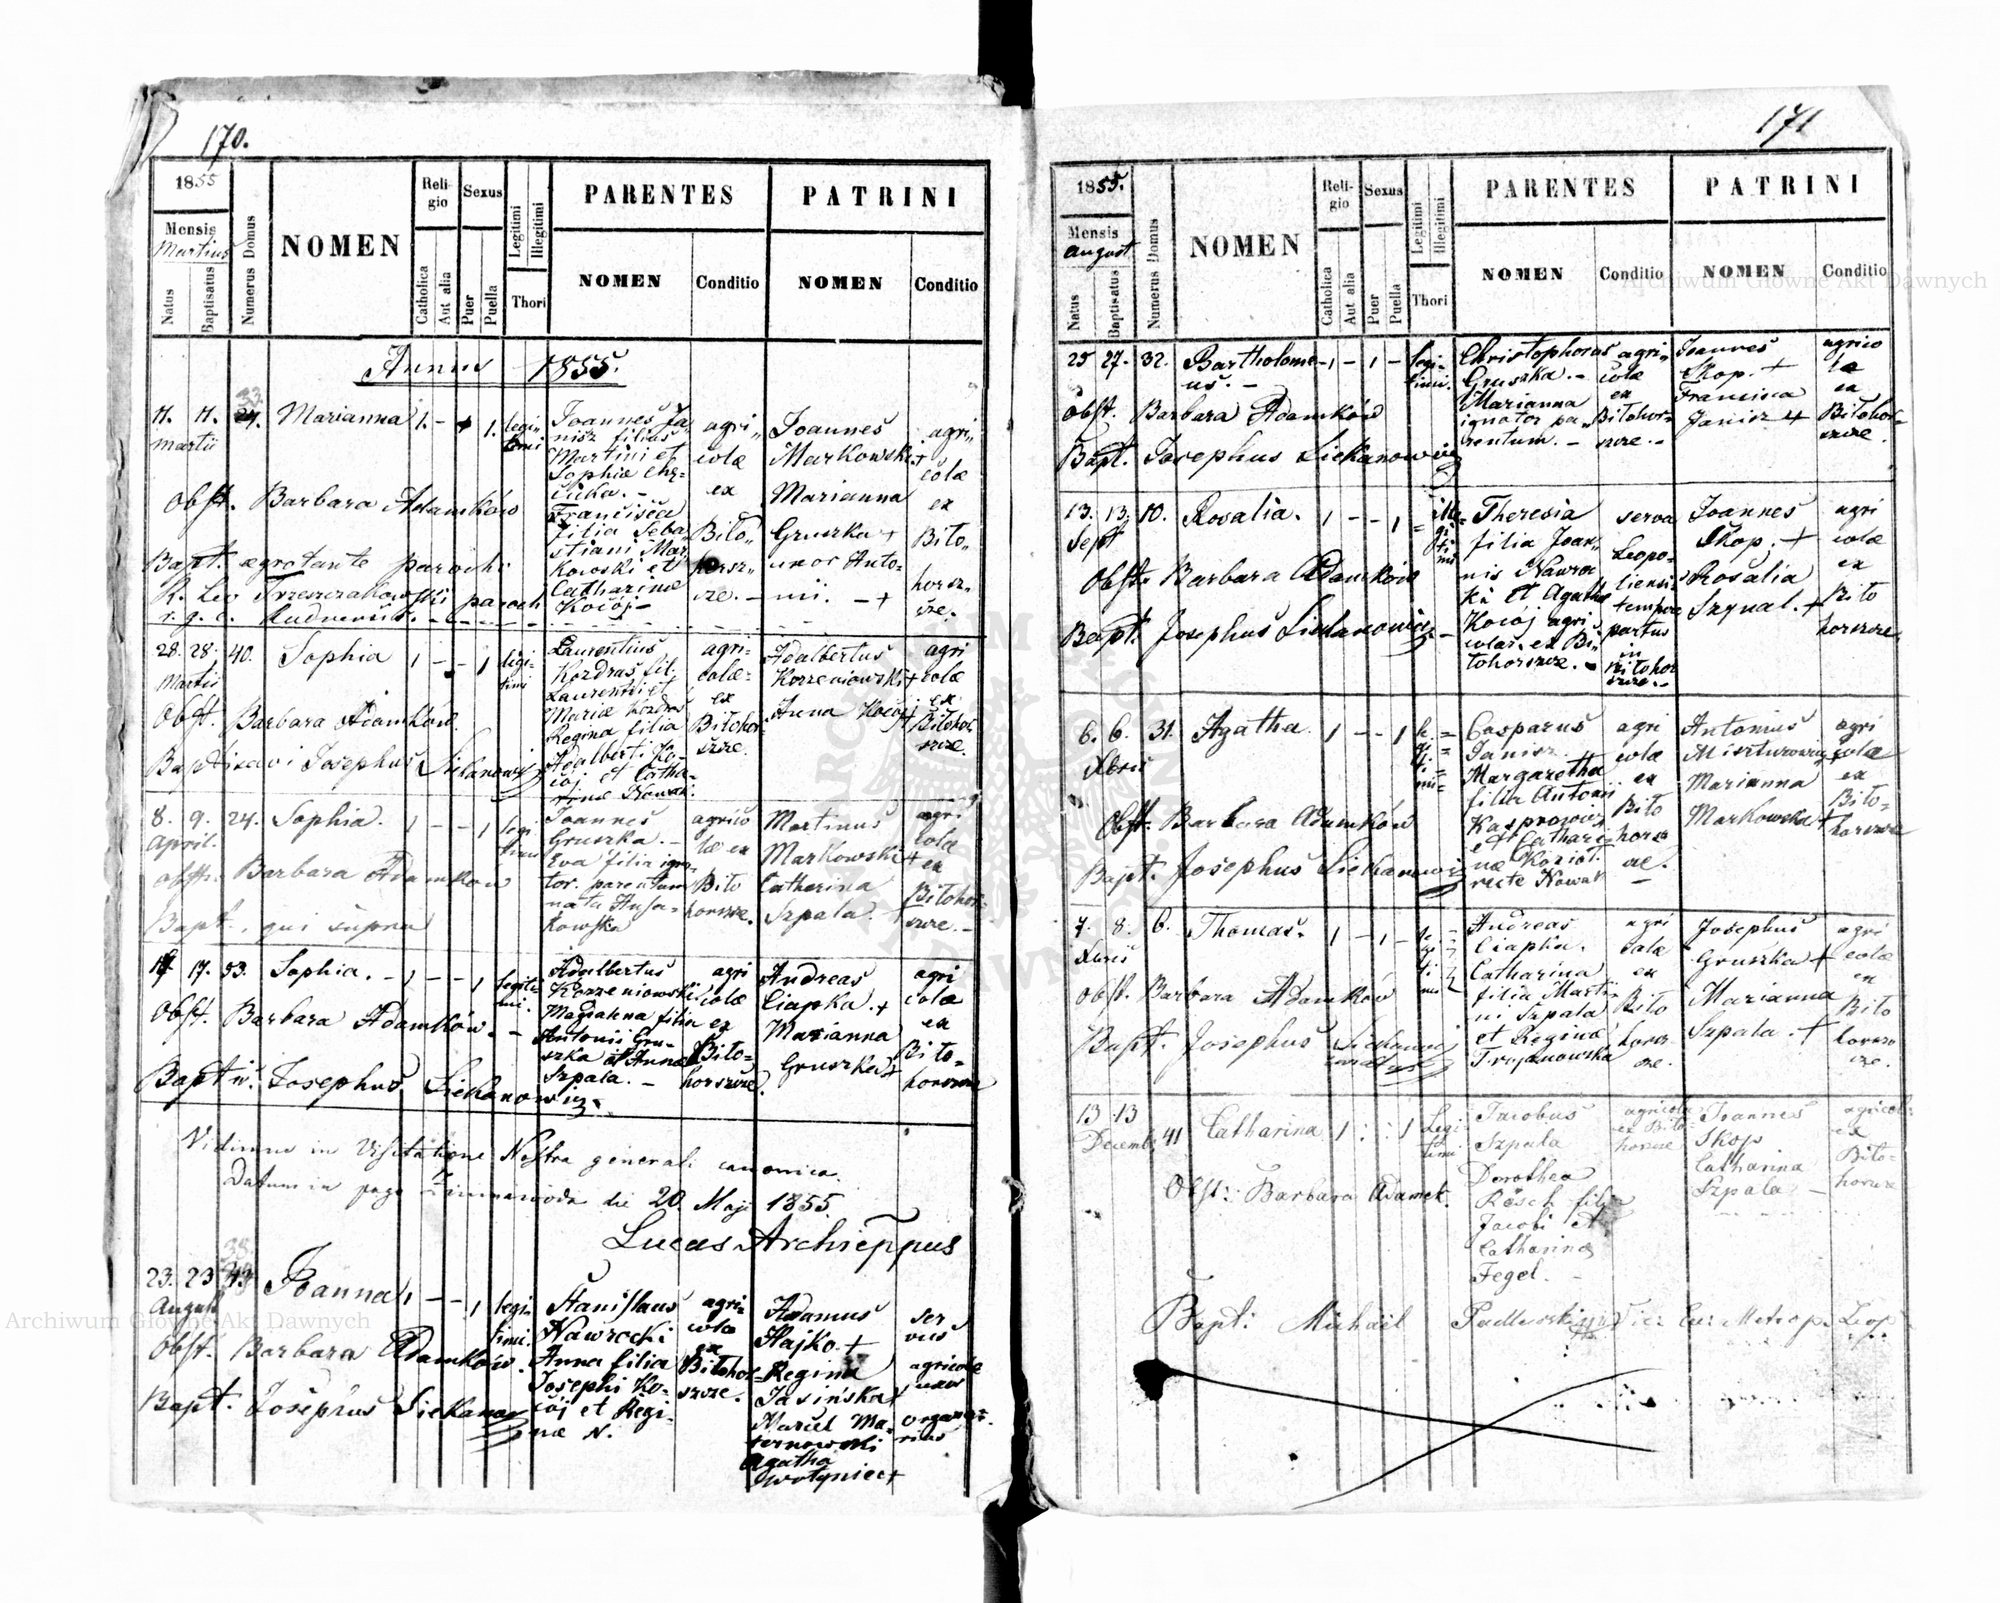 170.
1855
Mensis
Martius
Natus
Baptisatus
Numerus Domus
NOMEN
Religio
Catholica
Aut alia
Sexus
Puer
Puella
Legitimi
Illegitimi
Thori
PARENTES
NOMEN
Conditio
PATRINI
NOMEN
Conditio
Annus 1855.
11. 11. Marianna 1. - 1. legi„timi
Martii
Joannes Janisz filius
Martini et
Sophiæ
Francisca
filia Seba„
stiani Mar„
kowski et
Catharinæ
Kociój -
agri„
colæ
ex
Biło„
horsz„
cze. -
Joannes
Markowski +
Marianna
Gruszka +
uxor Anto„
nii. - +
agri„
colæ
ex
Biło„
horsz„
cze.
Obst. Barbara Adamków
Bapt. ægrotante parocho
R. Leo Trzeszczakowski paroch
r. g. c. Rudnensis.
28. 28. 40. Sophia 1 - - 1 legi-timi
Martii
Laurentius
Kozdraś fil.
Laurentii et
Mariæ Kozdraś
Regina filia
Adalberti Ko-
ciój et Catha-
rinæ Nowak.
agri-
colæ
ex
Biłohor
szcze.
Adalbertus
Korzeniowski +
Anna Kociój
agri
colæ
ex
Biłohor
szcze.
Obst. Barbara Adamków
Baptizavi Josephus Siekanowicz
8. 9. 24. Sophia. 1 - - 1 legi timi
April.
Joannes
Gruszka. -
Eva filia igno-
tor. parentum
nata
agrico
læ ex
Biło
horszcze.
Martinus
Markowski +
Catherina
Szpala. +
agri
colæ
ex
Biłohor-
szcze. -
Obst. Barbara Adamków
Bapt. qui supra
17. 53. Sophia. - 1 - - 1 legiti mi.
Adalbertus
Korzeniowski
Magdalena filia
Antonii Gru-
szka et Anna
Szpala. -
agri
colæ
ex
Biło-
horszcze
Andreas
Ciapka. +
Marianna
Gruszka +
agri
colæ
ex
Biło-
horszcze
Obst. Barbara Adamków. -
Bapt. Josephus Siekanowicz.
Vidimus in Visitatione Nostra generali canonica.
Datum in pago Zimnawoda die 20 Maji 1855.
Lucas Archieppus
23. 23 Joanna 1 - - 1 legi timi.
August
Stanislaus
Nawrocki
Anna filia
Josephi Ko-
ciój et Regi-
næ N.
agri-
colæ
ex
Biłohor-
szcze.
Adamus
Hajko +
Regina
Jasińska
Marcel Ma-
ternowski
Agatha
Wołyniec +
ser
vus
agricolæ
uxor
organa-
rius
Obst. Barbara Adamków.
Bapt. Josephus Siekanowicz
171
1855.
Mensis
August
Natus
Baptisatus
Numerus Domus
NOMEN
Religio
Catholica
Aut alia
Sexus
Puer
Puella
Legitimi
Illegitimi
Thori
PARENTES
NOMEN
Conditio
PATRINI
NOMEN
Conditio
25 27. 32. Bartholome- 1 - 1 - legi-timi.
us. -
Christophorus
Gruszka. -
Marianna
ignotor pa-
rentum. -
agri„
colæ
ex
Biłohor-
szcze. -
Joannes
Skop. +
Francisca
Janisz +
agrico
læ
ex
Biłohor-
szcze.
Obst. Barbara Adamków
Bapt. Josephus Siekanowicz
13. 13. 10. Rosalia. 1 - - 1
Sept
Theresia
filia Joan„
nis Nawroc
ki et Agathæ
Kociój agri
colar. ex Bi„
łohorszcze. -
serva
Leopo-
liensis
tempore
partus
in
Biłohor
szcze. -
Joannes
Skop. +
Rosalia
Szpual. +
agri
colæ
ex
Biło
horszcze
Obst. Barbara Adamków
Bapt. Josephus Siekanowicz -
6. 6. 31. Agatha. 1 - - 1
Xbris
Casparus
Janisz.
Margaretha
filia Antonii
Kasprowicz
et Cathari-
næ Kozioł
recte Nowak
agri
colæ
ex
Biło
horsz
cze.
Antonius
Marianna
Markowska +
agri
colæ
ex
Biło-
horszcze
Obst. Barbara Adamków
Bapt. Josephus Siekanowicz
7. 8. 6. Thomas. 1 - 1 -
Xbris
Andreas
Ciapka.
Catharina
filia Marti-
ni Szpala
et Regina
Trojanowska
agri
colæ
ex
Biło
horsz-
cze.
Josephus
Gruszka +
Marianna
Szpala. +
agri
colæ
ex
Biło
horsz
cze.
Obst. Barbara Adamków
Bapt. Josephus Siekanowicz
13 13 41 Catharina 1 : : 1 Legi timi
Decemb.
Jacobus
Szpala
Dorothea
Rösch filia
Jacobi et
Catharina
Fegel. -
agricolæ
ex Biło
horszcze
Joannes
Skop
Catharina
Szpala -
agricolæ
ex
Biło-
horszcze
Obst: Barbara Adamek.
Bapt: Michael Leop
Archiwum Główne Akt Dawnych
Archiwum Główne Akt Dawnych